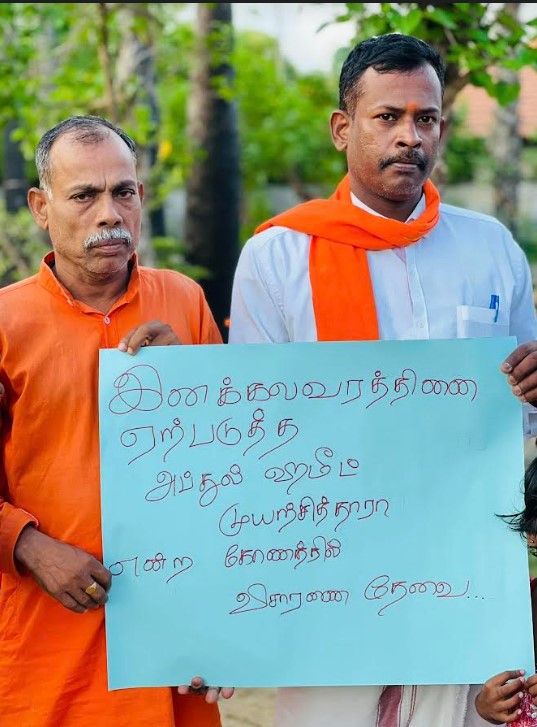 இனக்கலவரத்தினை
ஏற்படுத்த
அப்துல் ஹமீட்
முயற்சித்தாரா
என்ற கோணத்தில்
விசாரணை தேவை...